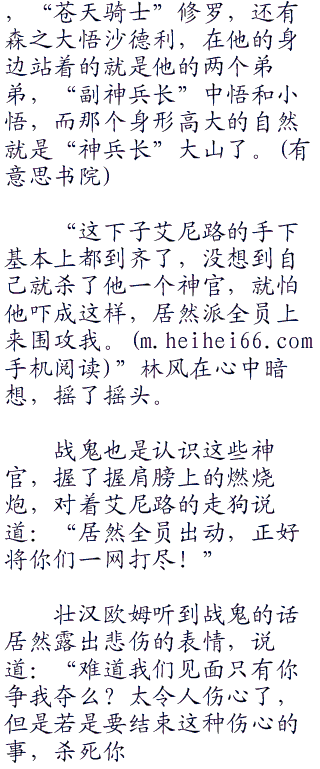 ，“苍天骑士”修罗，还有
森之大悟沙德利，在他的身
边站着的就是他的两个弟
弟，“副神兵长”中悟和小
悟，而那个身形高大的自然
就是“神兵长”大山了。(有
意思书院)
“这下子艾尼路的手下
基本上都到齐了，没想到自
己就杀了他一个神官，就怕
他吓成这样，居然派全员上
来围攻我。(m.heihei66.com
手机阅读)”林风在心中暗
想，摇了摇头。
战鬼也是认识这些神
官，握了握肩膀上的燃烧
炮，对着艾尼路的走狗说
道：“居然全员出动，正好
将你们一网打尽！”
壮汉欧姆听到战鬼的话
居然露出悲伤的表情，说
道：“难道我们见面只有你
争我夺么？太令人伤心了，
但是若是要结束这种伤心的
事，杀死你